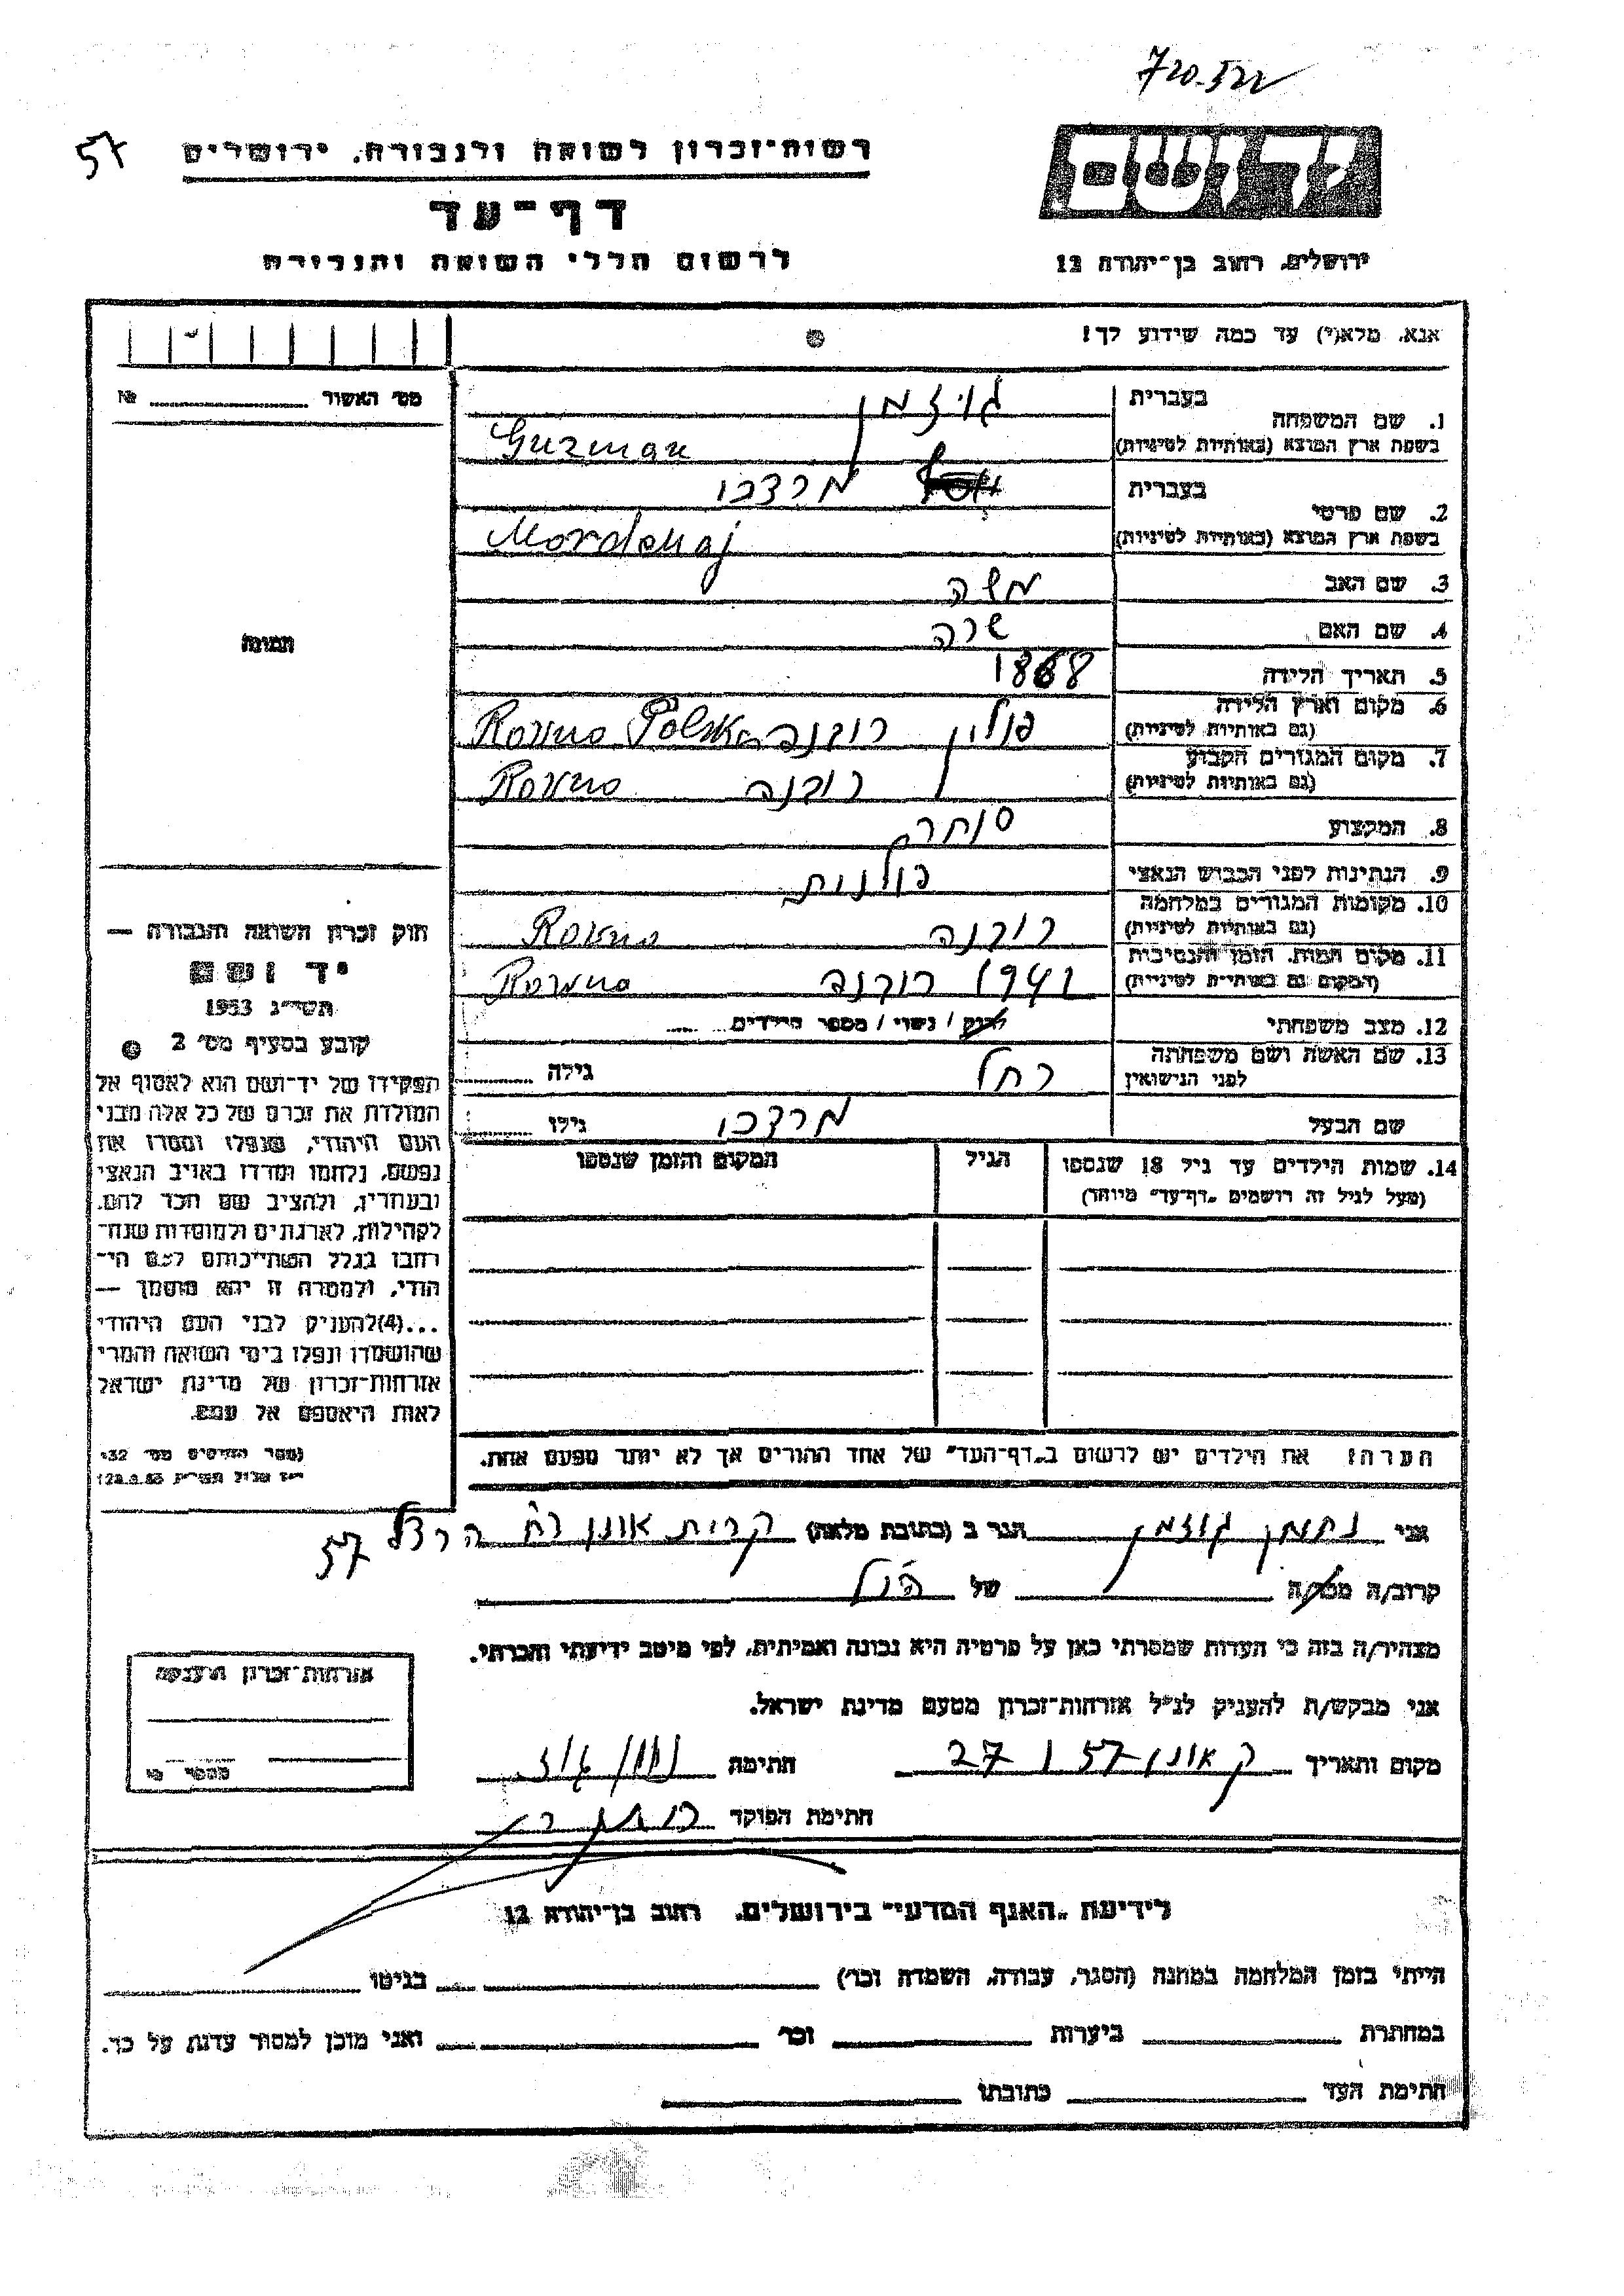 720.522
57
רשות־זכרון לשואה ולגבורה, ירושלים
דף־עד
לרשום חללי השואה והגבורה
יד ושם
ירושלים, רחוב בן־יהודה 12
אנא, מלא(י) עד כמה שידוע לך!
מס׳ האשור № 
1. שם המשפחה
בעברית גויזמן
בשפת ארץ המוצא (באותיות לטיניות) Guzman
2. שם פרטי
בעברית מרדכי
בשפת ארץ המוצא (באותיות לטיניות) Mordchaj
3. שם האב משה
4. שם האם שרה
5. תאריך הלידה 1868
6. מקום וארץ הלידה (גם באותיות לטיניות) פולין רובנה Rovno Polska
7. מקום המגורים הקבוע (גם באותיות לטיניות) רובנה Rovno
8. המקצוע סוחר
9. הנתינות לפני הכבוש הנאצי פולנית
10. מקומות המגורים במלחמה (גם באותיות לטיניות) רובנה Rovno
11. מקום המות, הזמן והנסיבות (המקום גם באותיות לטיניות) 1941 רובנה Rowno
12. מצב משפחתי רווק / נשוי / מספר הילדים
13. שם האשה ושם משפחתה לפני הנישואין רחל גילה
שם הבעל מרדכי גילו
14. שמות הילדים עד גיל 18 שנספו הגיל המקום והזמן שנספו
(מעל לגיל זה רושמים „דף־עד״ מיוחד)
הערה: את הילדים יש לרשום ב„דף־העד״ של אחד ההורים אך לא יותר מפעם אחת.
תמונה
חוק זכרון השואה והגבורה —
יד ושם
תשי״ג 1953
קובע בסעיף מס׳ 2
תפקידו של יד־ושם הוא לאסוף אל
המולדת את זכרם של כל אלה מבני
העם היהודי, שנפלו ומסרו את
נפשם, נלחמו ומרדו באויב הנאצי
ובעוזריו, ולהציב שם וזכר להם,
לקהילות, לארגונים ולמוסדות שנח־
רבו בגלל השתייכותם לעם הי־
הודי, ולמטרה זו יהא מוסמך —
...(4)להעניק לבני העם היהודי
שהושמדו ונפלו בימי השואה והמרי
אזרחות־זכרון של מדינת ישראל
לאות היאספם אל עמם.
אני נחמן גוזמן הגר ב (כתובת מלאה) קרית אונו רח הרצל 57
קרוב/ה מכר/ה של הנ״ל
מצהיר/ה בזה כי העדות שמסרתי כאן על פרטיה היא נכונה ואמיתית, לפי מיטב ידיעתי והכרתי.
אני מבקש/ת להעניק לנ״ל אזרחות־זכרון מטעם מדינת ישראל.
מקום ותאריך ק אונו 27 I 57 חתימה
חתימת הפוקד
אזרחות־זכרון הוענקה
מספר
לידיעת „האגף המדעי״ בירושלים, רחוב בן־יהודה 12
הייתי בזמן המלחמה במחנה (הסגר, עבודה, השמדה וכו׳) בגיטו
במחתרת ביערות וכו׳ ואני מוכן למסור עדות על כך.
חתימת העד כתובתו